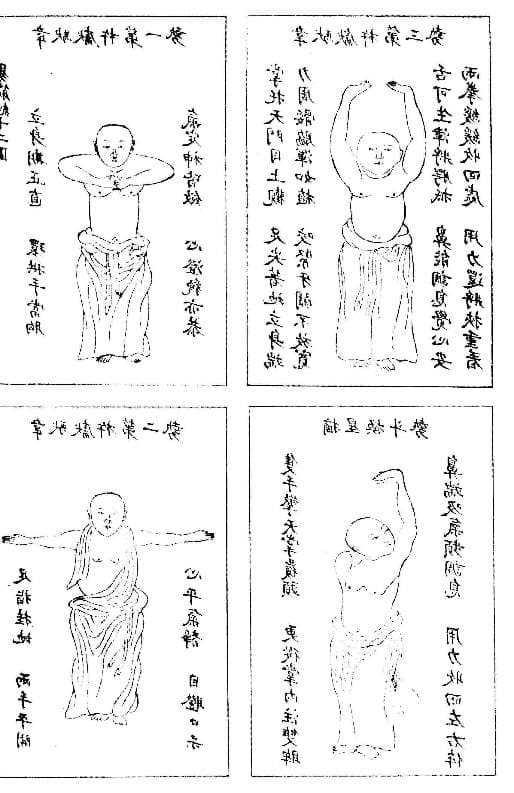 易筋經十二圖
韋馱獻杵第一勢
立身期正直 環拱手當胸
氣定神皆斂 心澄貌亦恭
韋馱獻杵第二勢
足指挂地 兩手平開
心平氣靜 目瞪口呆
韋馱獻杵第三勢
掌托天門目上觀 足尖着地立身端
力周骽脇渾如植 咬緊牙關不放寬
舌可生津將腭抵 鼻能調息覺心安
兩拳緩緩收回處 用力還將挾重看
摘星換斗勢
隻手擎天掌覆頭 更從掌內注雙眸
鼻端吸氣頻調息 用力收回左右侔